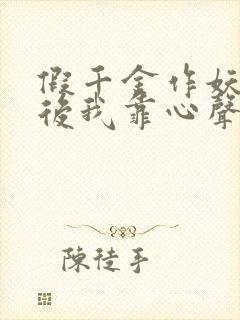 假千金作妖
後我靠心聲
陳徒手